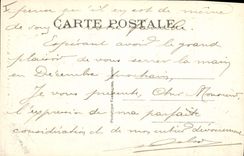 CARTE POSTALE
pense qu'il en est de même
de vous
Espérant avoir le grand
plaisir de vous serrer la main
en Décembre prochain,
Je vous présente, Cher Monsieur
l'expression de ma parfaite
considération et de mon entier dévouement